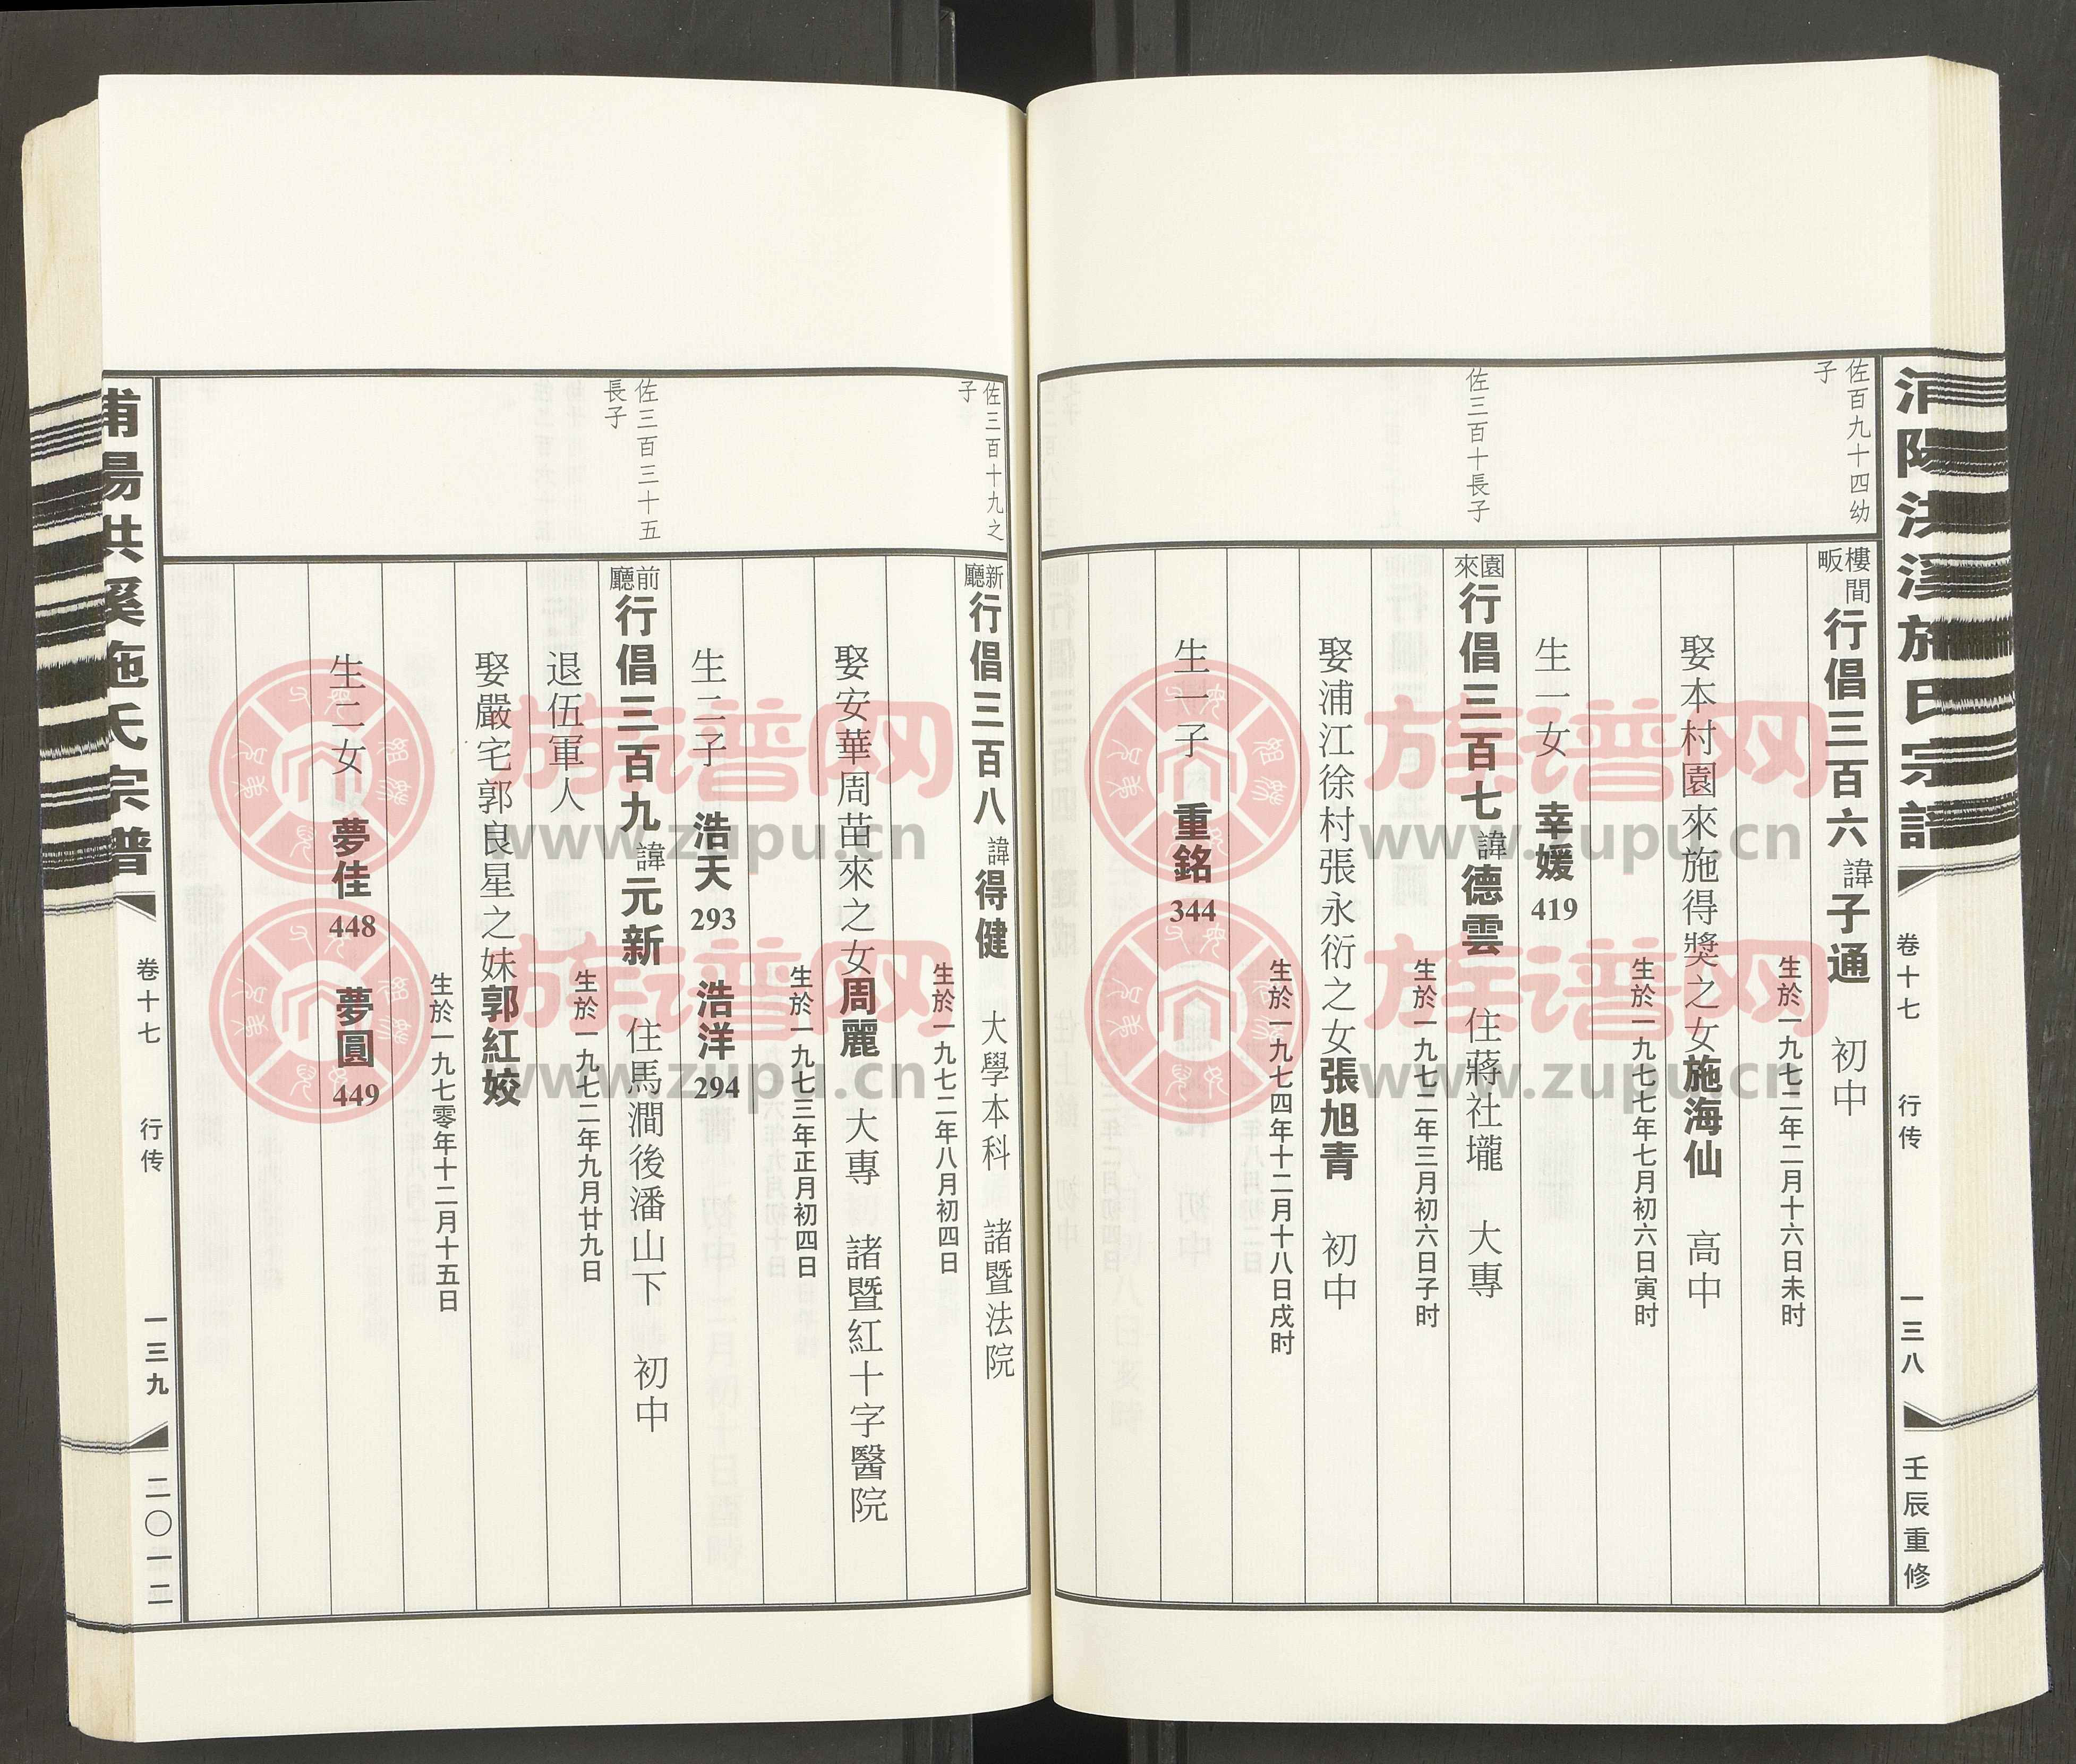 浦陽洪溪施氏宗譜
卷十七
行传
一三八
壬辰重修
佐百九十四幼
子
樓間
畈
行倡三百六諱子通 初中
生於一九七二年二月十六日未时
娶本村園來施得獎之女施海仙 高中
生於一九七七年七月初六日寅时
生一女 幸媛419
佐三百十長子
園
來
行倡三百七諱德雲 住蔣社壠 大專
生於一九七二年三月初六日子时
娶浦江徐村張永衍之女張旭青 初中
生於一九七四年十二月十八日戌时
生一子 重銘344
佐三百十九之
子
新
廳
行倡三百八諱得健 大學本科 諸暨法院
生於一九七二年八月初四日
娶安華周苗來之女周麗 大專 諸暨紅十字醫院
生於一九七三年正月初四日
生二子 浩天293 浩洋294
佐三百三十五
長子
前
廳
行倡三百九諱元新 住馬澗後潘山下 初中
生於一九七二年九月廿九日
退伍軍人
娶嚴宅郭良星之妹郭紅姣
生於一九七零年十二月十五日
生二女 夢佳448 夢圓449
浦陽洪溪施氏宗譜
卷十七
行传
一三九
二〇一二
族谱网
www.zupu.cn
族谱网
www.zupu.cn
族谱网
www.zupu.cn
族谱网
www.zupu.cn